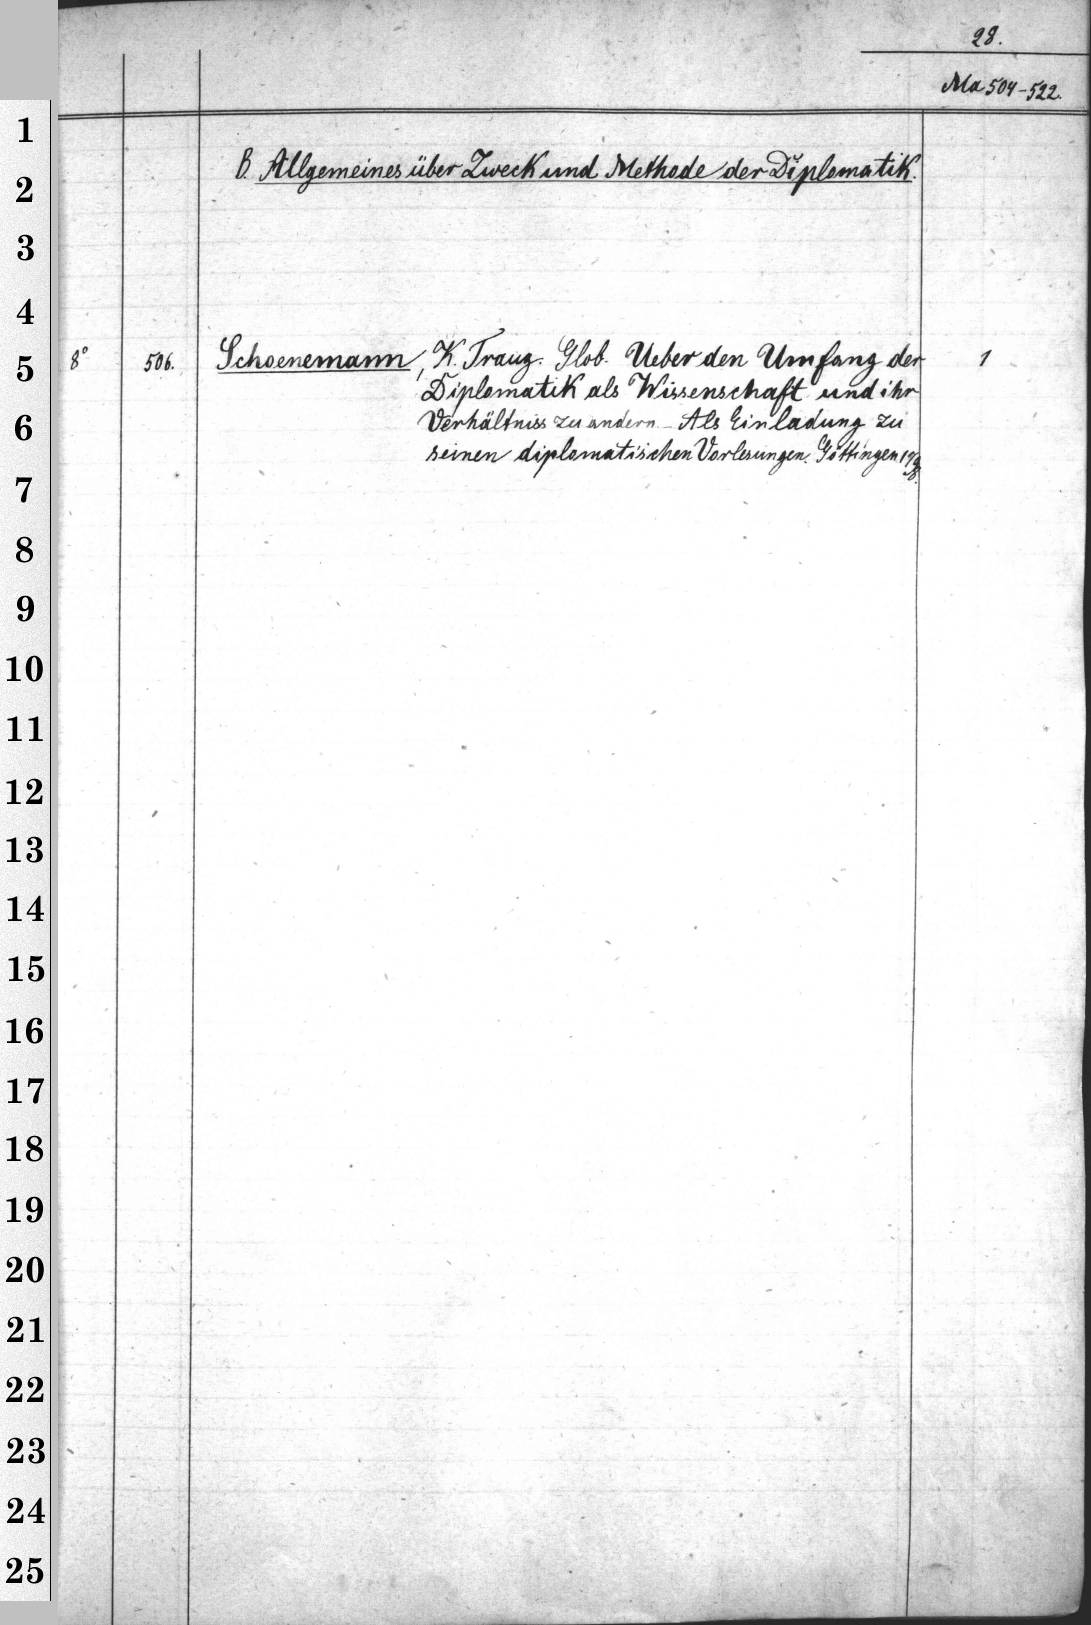 28.
Ma 504-522.
B. Allgemeines über Zweck und Methode der Diplomatik.
8° 506. Schoenemann, K. Traug. Glob. Ueber den Umfang der 1
Diplomatik als Wissenschaft und ihr
Verhältniss zu andern – Als Einladung zu
seinen diplomatischen Vorlesungen. Göttingen
1
2
3
4
5
6
7
8
9
10
11
12
13
14
15
16
17
18
19
20
21
22
23
24
25